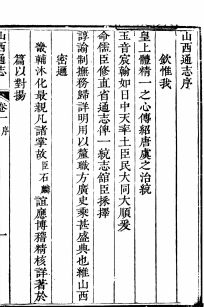 山西通志序
欽惟我
皇上體精一之心傳紹唐虞之治統
玉音宸翰如日中天率土臣民大同大順爰
命儒臣修直省通志俾一統志舘臣採擇
諄諭制撫務歸詳明用以釐職方廣史乘甚盛典也維山西
密邇
畿輔沐化最親凡諸掌故臣石麟誼應博稽精核詳著於
篇以對揚
山西通志
卷一 序